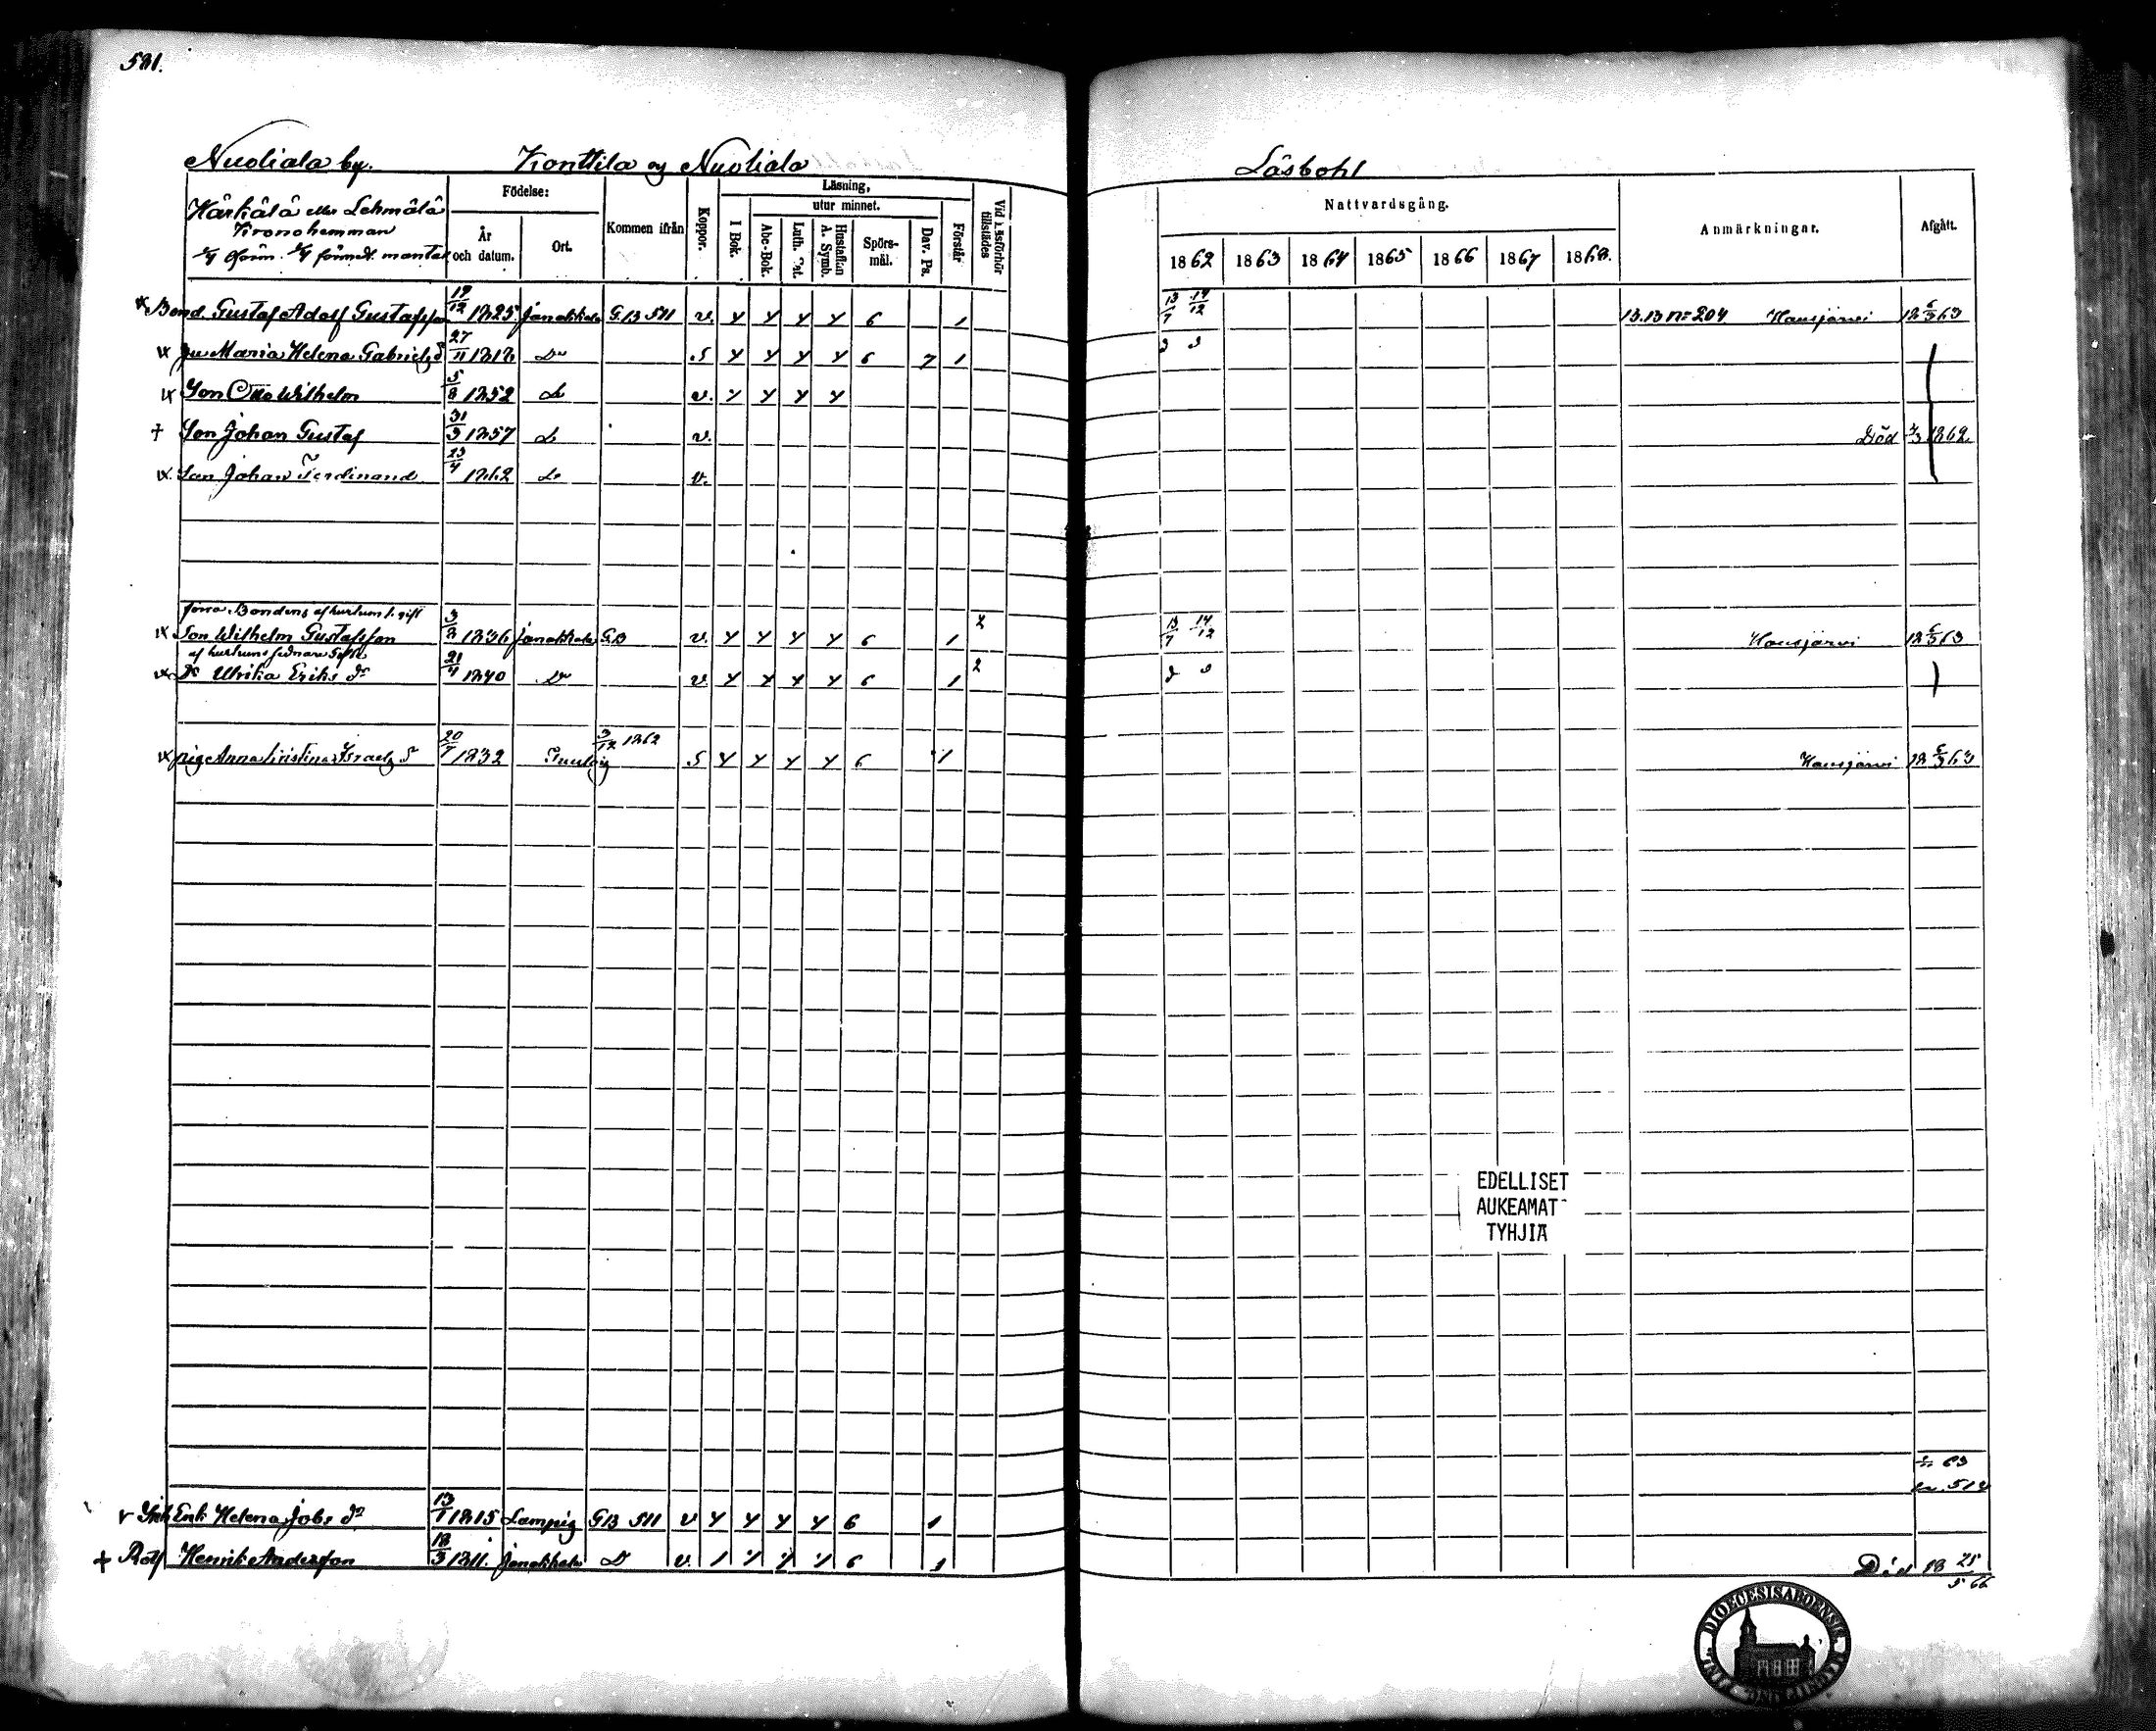 581.
Nuoliala by. Konttila og Nuoliala Låsbohl
Härkälä eller Lehmälä
Kronohemman
Födelse:
År och datum.
Ort.
Kommen ifrån
Koppor.
Läsning,
utur minnet.
I Bok.
Abc-Bok.
Luth. Cat.
Hustaflan
A. Symb.
Spörs-
mål.
Dav. Ps.
Förstår
Vid Läsförhör
tillstädes
Nattvardsgång.
1862 1863 1864 1865 1866 1867 1868.
Anmärkningar.
Afgått.
Bond. Gustaf Adolf Gustafsson 19/12 1825 Janakkala G.B 511 v. y y y y 6 1 13/7 14/12 B.B n= 204 Hausjärvi 18 6/3 63
Hu Maria Helena Gabriels d 27/11 1818 Do S y y y y 6 7 1
Son Otto Wilhelm 5/8 1852 Do v. y y y y
† Son Johan Gustaf 31/3 1857 Do v. Död 1862
Son Johan Ferdinand 23/4 1862 Do v.
förra Bondens af hustruns 1. gift
Son Wilhelm Gustafsson 3/2 1836 Janakkala G.B v. y y y y 6 1 2 13/7 14/12 Hausjärvi 18 6/3 63
af hustruns sednare gifte
Ulrika Eriks dr 21/4 1840 Do v y y y y 6 1 2
pig Anna Kristina Israels d 20/7 1832 Tuulois 3/12 1862 S y y y y 6 1 Hausjärvi 18 6/3 63
EDELLISET
AUKEAMAT
TYHJIÄ
63
512
v Enk Helena Jobs dr 13/1 1815 Lampis GB 511 v y y y y 6 1
+ Rotf Henrik Andersson 18/3 1811. Janakkala D v. 6 1 Död 18 25/5 66
DIOECESIS ABOENSIS